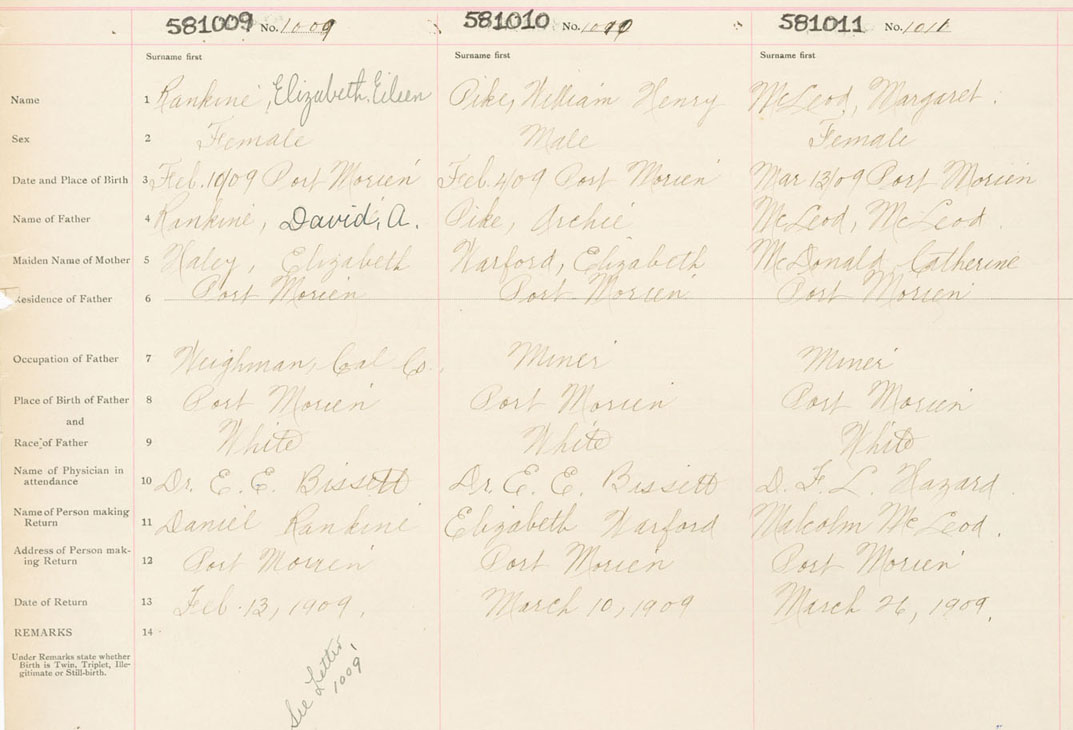 581009 No. 1009 581010 No. 1010 581011 No. 1011
Surname first Surname first Surname first
Name 1 Rankine, Elizabeth. Eileen Pike, William Henry McLeod, Margaret.
Sex 2 Female Male Female
Date and Place of Birth 3 Feb. 10 09 Port Morien Feb. 4 09 Port Morien Mar 13/09 Port Morien
Name of Father 4 Rankine, David, A. Pike, Archie McLeod, McLeod.
Maiden Name of Mother 5 Haley, Elizabeth Warford, Elizabeth McDonald, Catherine
Residence of Father 6 Port Morien Port Morien Port Morien
Occupation of Father 7 Weighman, Coal Co. Miner Miner
Place of Birth of Father 8 Port Morien Port Morien Port Morien
and
Race of Father 9 White White White
Name of Physician in
attendance 10 Dr. E. E. Bissett Dr. E. E. Bissett D. F. L. Hazard
Name of Person making
Return 11 Daniel Rankine Elizabeth Warford Malcolm McLeod.
Address of Person mak-
ing Return 12 Port Morien Port Morien Port Morien
Date of Return 13 Feb. 13, 1909. March 10, 1909 March 26, 1909.
REMARKS 14
Under Remarks state whether
Birth is Twin, Triplet, Ille-
gitimate or Still-birth.
See Letter
1009